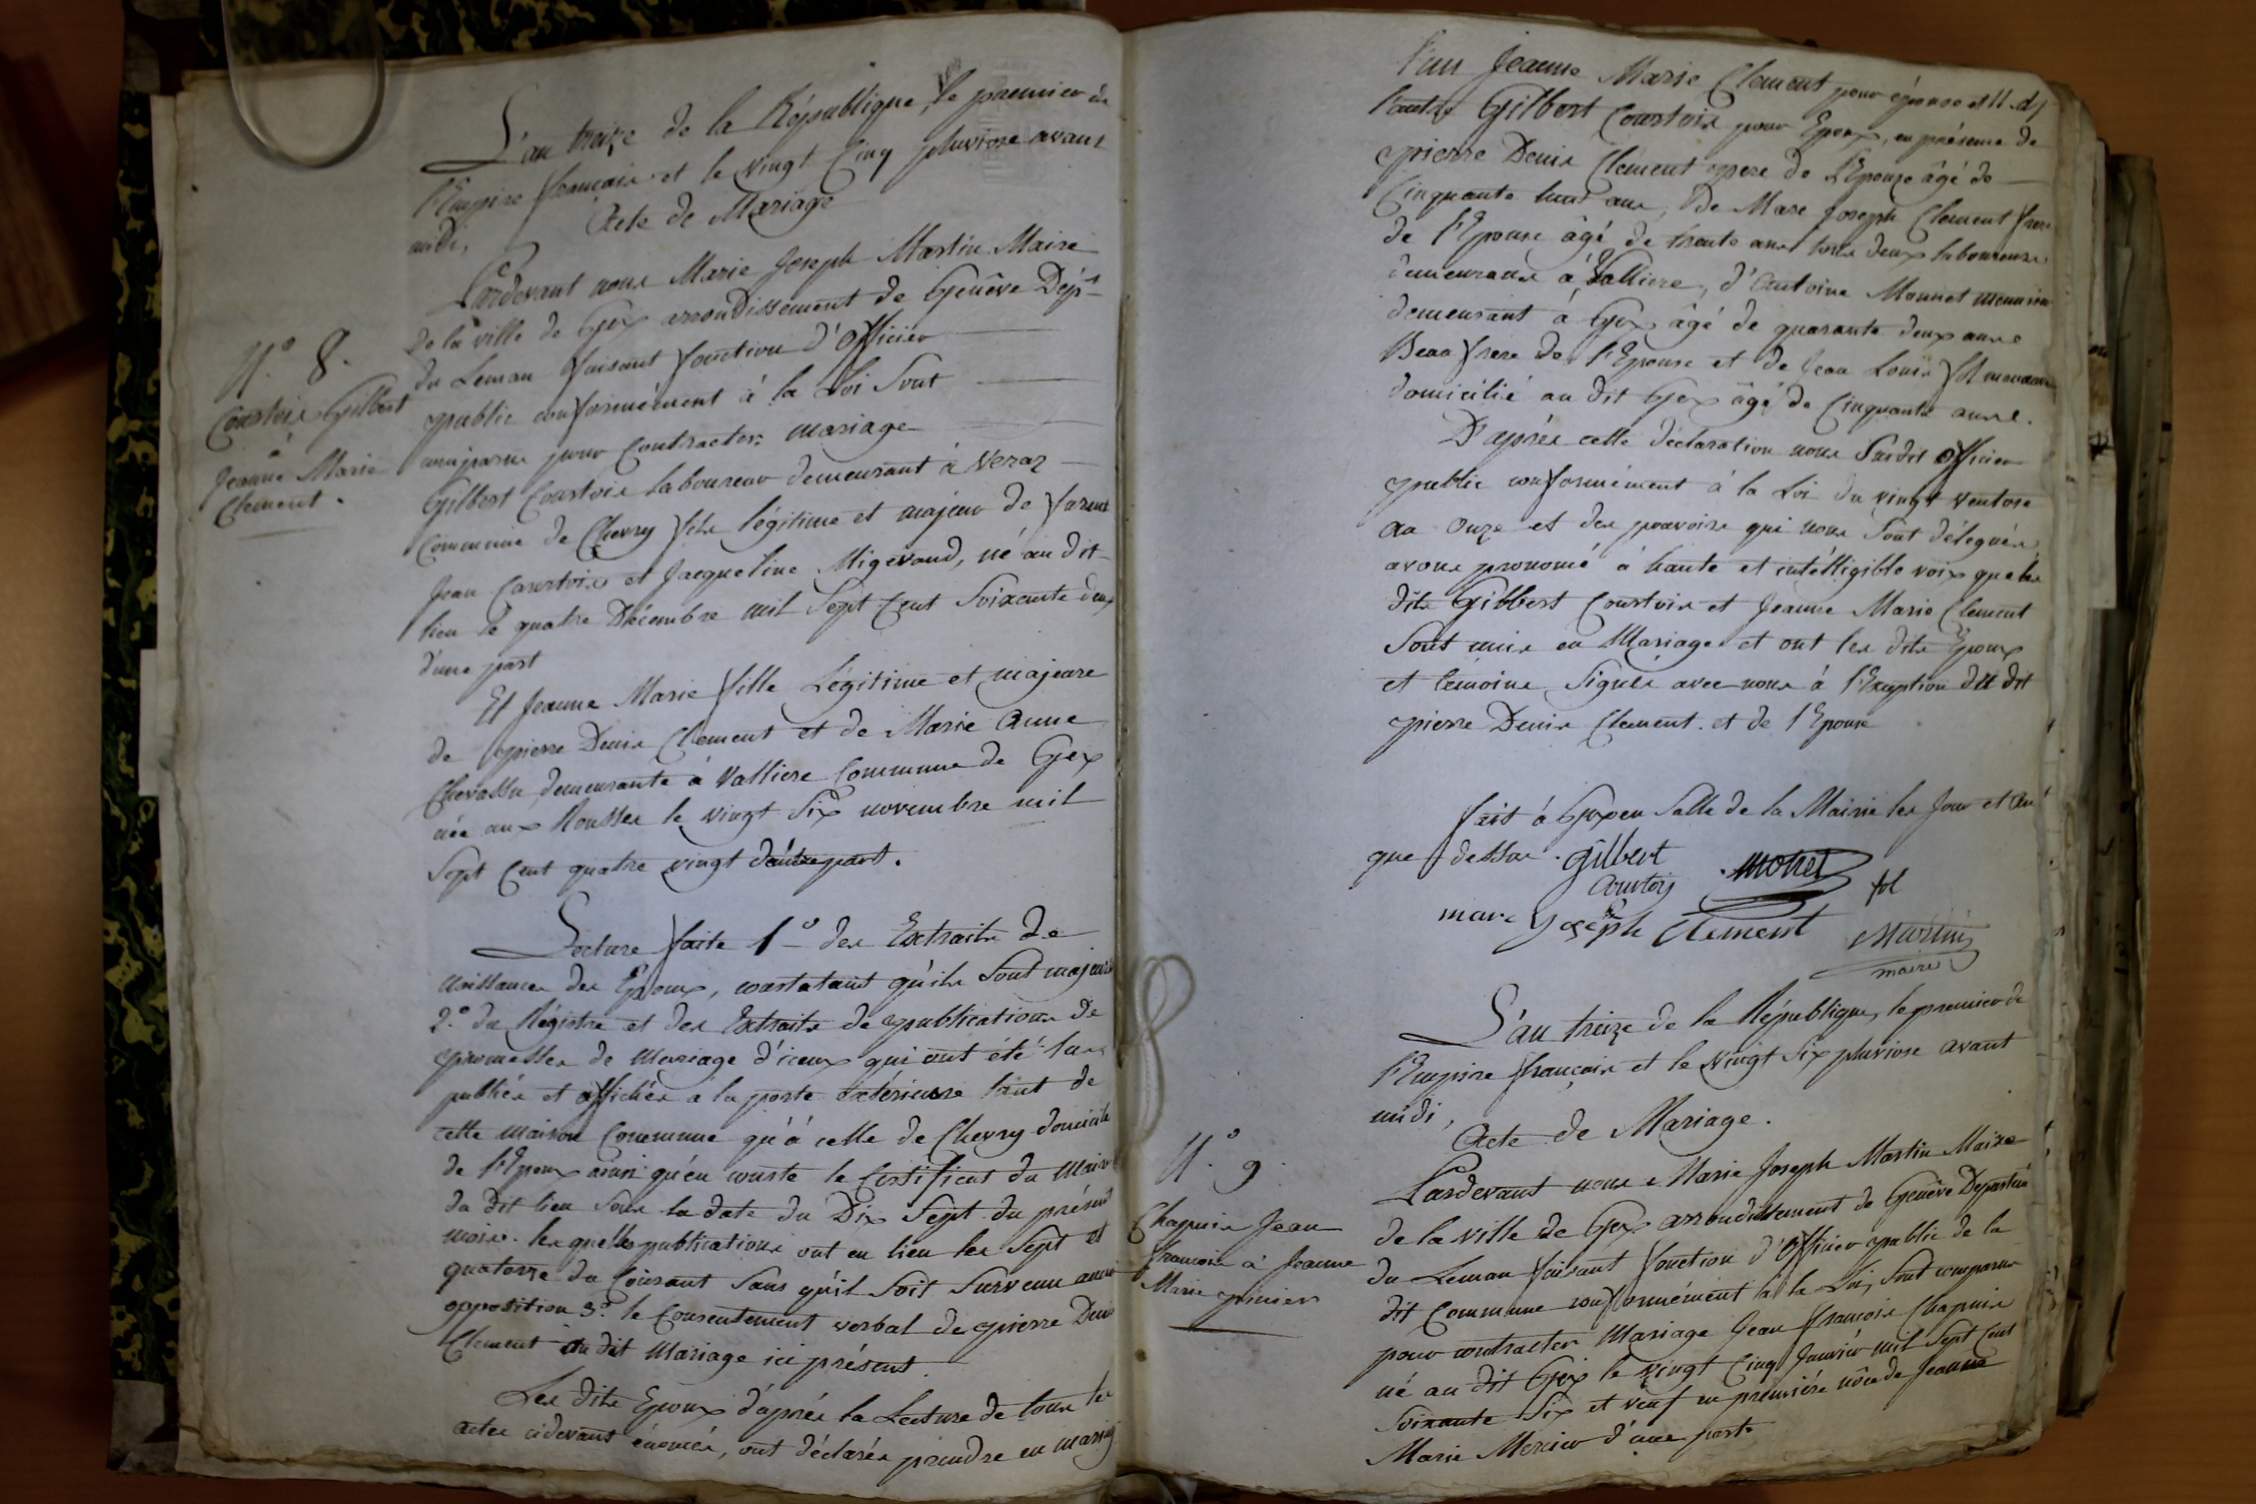 L'an treize de la République, le premier de
l'Empire français et le vingt Cinq pluviose avant
midi,
Acte de Mariage
Pardevant nous Marie Joseph Martin Maire
de la ville de Gex arrondissement de Genêve Dépt
du Leman faisant fonction d'Officier
public conformément à la Loi Sont
comparus pour Contracter mariage
N.º 8.
Courtois Gilbert
à
Jeanne Marie
Clement.
Gilbert Courtois laboureur demeurant à Veraz
Commune de Chevry fils légitime et majeur de
Jean Courtois et Jacqueline Migevaud, né au dit
lieu le quatre Décembre mil Sept Cent Soixante deux
d'une part
Et Jeanne Marie fille Légitime et majeure
de pierre Denis Clement et de Marie Anne
Chevassu demeurante à Valliere Commune de Gex
née aux Rousses le vingt Six novembre mil
Sept Cent quatre vingt d'autre part.
Lecture faite 1º des Extraits de
naissances des Epoux, constatant qu'ils Sont majeurs
2.º du Régistre et des Extraits de publications de
promesses de Mariage d'iceux qui ont été lues
publiés et affichés a la porte Extérieure tant de
cette maison Commune qu'à celle de Chevry domicile
de l'Epoux ainsi qu'en conste le Certificat du Maire
du dit lieu Sous la date du Dix Sept du présent
mois. les quelles publications ont eu lieu les Sept et
quatorze du Courant Sans qu'il Soit Survenu aucune
opposition 3.º le Consentement verbal de pierre Denis
Clement au dit Mariage ici présent.
Les dits Epoux d'après la Lecture de tous les
actes cidevant énomés, ont déclarés prendre en mariage
l'un Jeanne Marie Clement pour épouse et
l'autre Gilbert Courtois pour Epoux, en présence de
pierre Denis Clément pere de l'Epouse âgé de
Cinquante huit ans, De Marc Joseph Clement frere
de l'Epouse âgé de trente ans tous deux laboureurs
demeurans à Valliere, d'Antoine Monnet menuisier
demeurant à Gex âgé de quarante deux ans
Beau frere de l'Epouse et de Jean Louis
domicilié au dit Gex âgé de Cinquante ans.
D'après cette déclaration nous Susdit Officier
public conformément à la Loi du vingt Ventose
an Onze et des pouvoirs qui nous Sont délegués
avons prononcé à haute et intélligible voix que les
dits Gilbert Courtois et Jeanne Marie Clement
Sont unis en Mariage et ont les dits Epoux
et témoins Signés avec nous à l'Exception du dit
pierre Denis Clement. et de l'Epouse
fait à Gex en Salle de la Mairie les Jour et An
que dessus. Gilbert
Courtois
Monet
marc Joseph Clement
Martin
maire
L'an treize de la République, le premier de
l'Empire français et le Vingt Six pluviose avant
midi,
Acte de Mariage.
N.º 9.
Chapuis Jean
francois à Jeanne
Marie
Pardevant nous Marie Joseph Martin Maire
de la ville de Gex arrondissement de Genêve Departemt
du Leman faisant fonction d'Officier public de la
dit Commune conformément à la Loi, Sont comparus
pour contracter Mariage Jean francois Chapuis
né au dit Gex le vingt Cinq Janvier mil Sept Cent
Soixante Six et veuf en premiére nôce de Jeanne
Marie Mercier d'une part